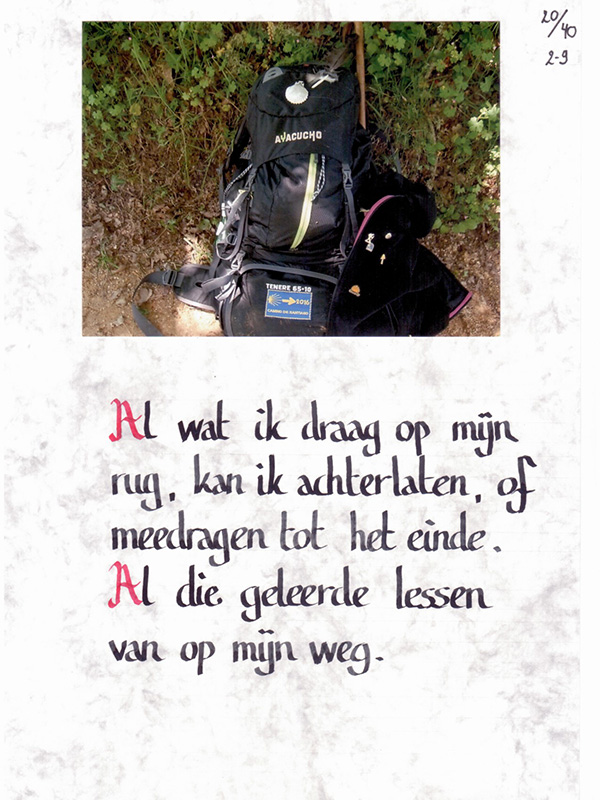 20/40
2-9
AYACUCHO
TENERE 65+10
2016
CAMINO DE SANTIAGO
Al wat ik draag op mijn
rug, kan ik achterlaten, of
meedragen tot het einde.
Al die geleerde lessen
van op mijn weg.